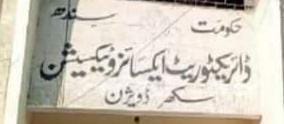 حکومت سندھ
ڈائریکٹوریٹ ایکسائز و ٹیکسیشن
سکھر ڈویژن